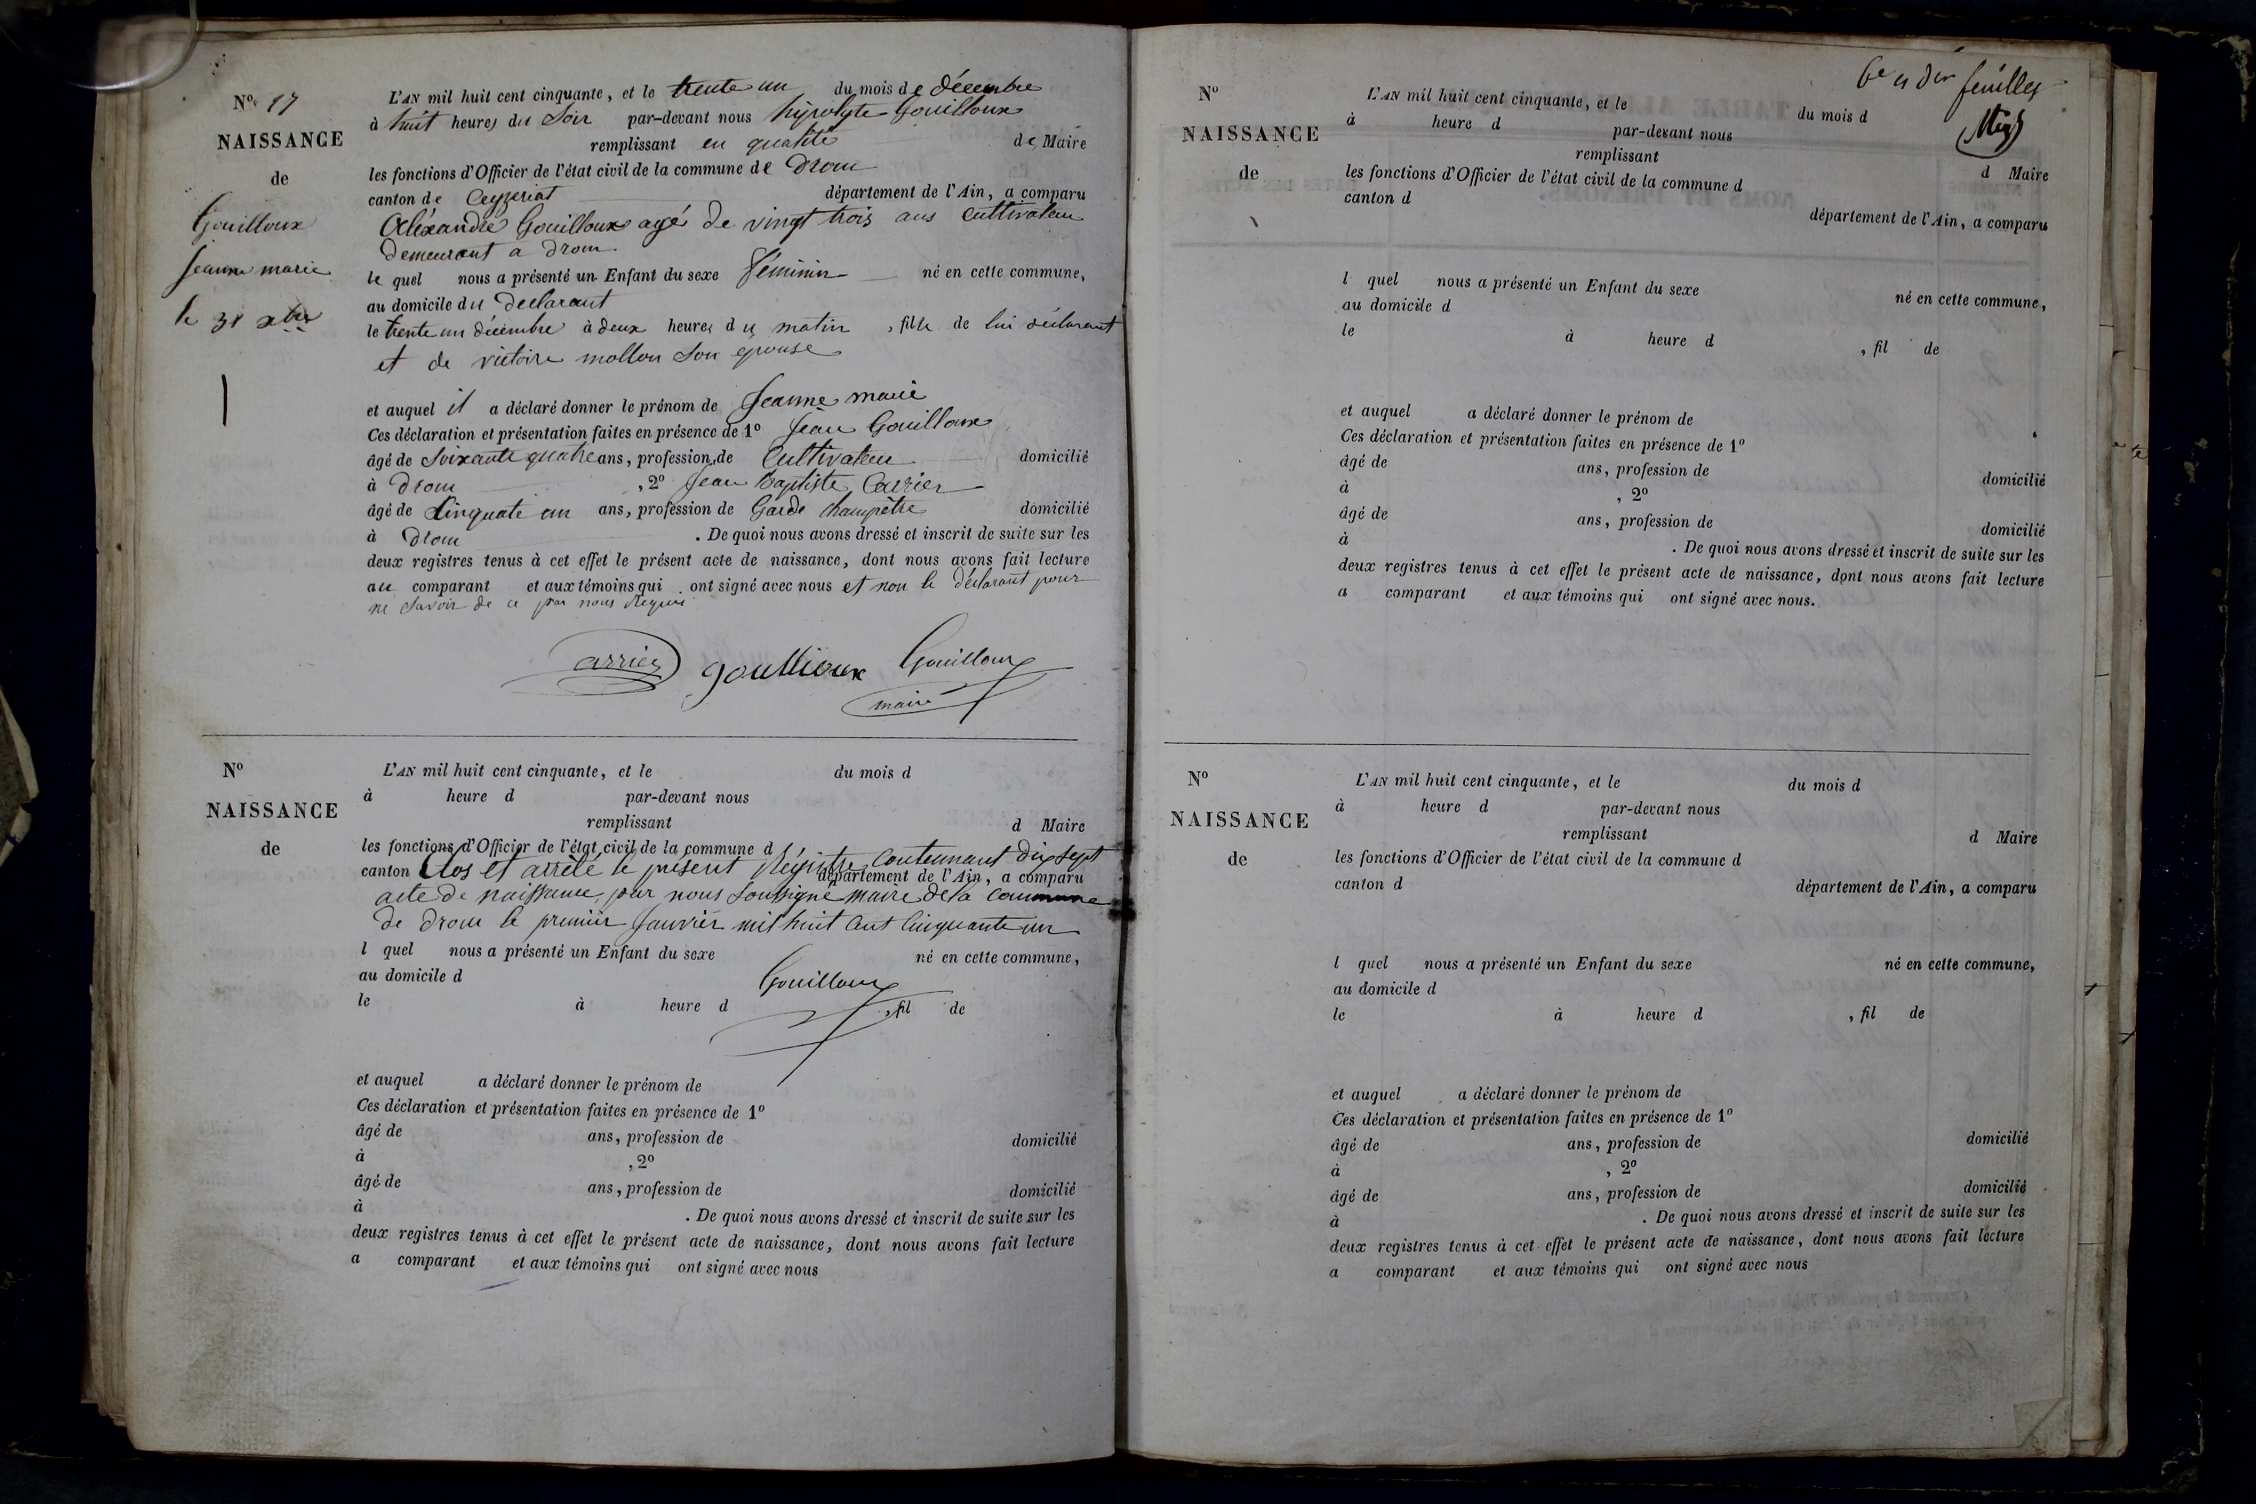 N° 17
NAISSANCE
de
Gouilloux
Jeanne marie
le 31 xbre
L'AN mil huit cent cinquante, et le trente un du mois de décembre
à huit heures du Soir par-devant nous hipolyte Gouilloux
remplissant en qualité de Maire
les fonctions d'Officier de l'état civil de la commune de Drom
canton de Ceyzeriat département de l'Ain, a comparu
Aléxandre Gouilloux agé de vingt trois ans Cultivateur
demeurant a Drom
le quel nous a présenté un Enfant du sexe féminin né en cette commune,
au domicile du declarant
le trente un décembre à deux heures du matin, fille de lui déclarant
et de victoire mollon Son épouse
et auquel il a déclaré donner le prénom de Jeanne marie
Ces déclaration et présentation faites en présence de 1° Jean Gouilloux
âgé de Soixante quatre ans, profession de Cultivateur domicilié
à Drom, 2° Jean Baptiste Carrier
âgé de Cinquate un ans, profession de Garde champêtre domicilié
à Drom. De quoi nous avons dressé et inscrit de suite sur les
deux registres tenus à cet effet le présent acte de naissance, dont nous avons fait lecture
au comparant et aux témoins qui ont signé avec nous et non le déclarant pour
ne Savoir de ce par nous Requis
Carrier goullioux Gouilloux
maire
N°
NAISSANCE
de
L'AN mil huit cent cinquante, et le du mois d
à heure d par-devant nous
remplissant d Maire
les fonctions d'Officier de l'état civil de la commune d
canton département de l'Ain, a comparu
Clos et arrêlé le présent Régistre Contennant dix sept
acte de naissance, par nous Soussigné maire de la commune
de Drom le premier Janvier mil huit Cent Cinquante un
l quel nous a présenté un Enfant du sexe né en cette commune,
au domicile d
Gouilloux
le à heure d , fil de
et auquel a déclaré donner le prénom de
Ces déclaration et présentation faites en présence de 1°
âgé de ans, profession de domicilié
à , 2°
âgé de ans, profession de domicilié
à . De quoi nous avons dressé et inscrit de suite sur les
deux registres tenus à cet effet le présent acte de naissance, dont nous avons fait lecture
a comparant et aux témoins qui ont signé avec nous
6e et der feuilles
N°
NAISSANCE
de
L'AN mil huit cent cinquante, et le du mois d
à heure d par-devant nous
remplissant d Maire
les fonctions d'Officier de l'état civil de la commune d
canton d département de l'Ain, a comparu
l quel nous a présenté un Enfant du sexe né en cette commune,
au domicile d
le à heure d , fil de
et auquel a déclaré donner le prénom de
Ces déclaration et présentation faites en présence de 1°
âgé de ans, profession de domicilié
à , 2°
âgé de ans, profession de domicilié
à . De quoi nous avons dressé et inscrit de suite sur les
deux registres tenus à cet effet le présent acte de naissance, dont nous avons fait lecture
a comparant et aux témoins qui ont signé avec nous.
N°
NAISSANCE
de
L'AN mil huit cent cinquante, et le du mois d
à heure d par-devant nous
remplissant d Maire
les fonctions d'Officier de l'état civil de la commune d
canton d département de l'Ain, a comparu
l quel nous a présenté un Enfant du sexe né en cette commune,
au domicile d
le à heure d , fil de
et auquel a déclaré donner le prénom de
Ces déclaration et présentation faites en présence de 1°
âgé de ans, profession de domicilié
à , 2°
âgé de ans, profession de domicilié
à . De quoi nous avons dressé et inscrit de suite sur les
deux registres tenus à cet effet le présent acte de naissance, dont nous avons fait lecture
a comparant et aux témoins qui ont signé avec nous